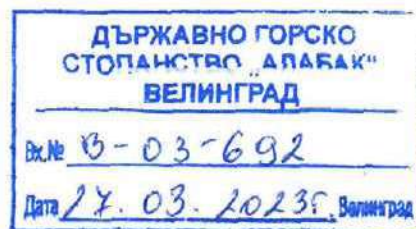 ДЪРЖАВНО ГОРСКО
СТОПАНСТВО „АЛАБАК“
ВЕЛИНГРАД
Вх.№ В-03-692
Дата 27.03.2023г. Велинград